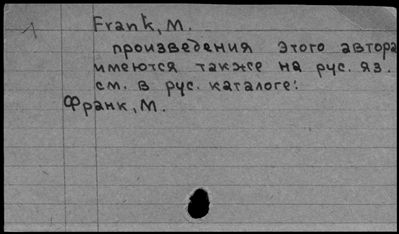 Frank, M.
произведения этого автора
имеются также на рус. яз.
см. в рус. каталоге:
Франк, М.